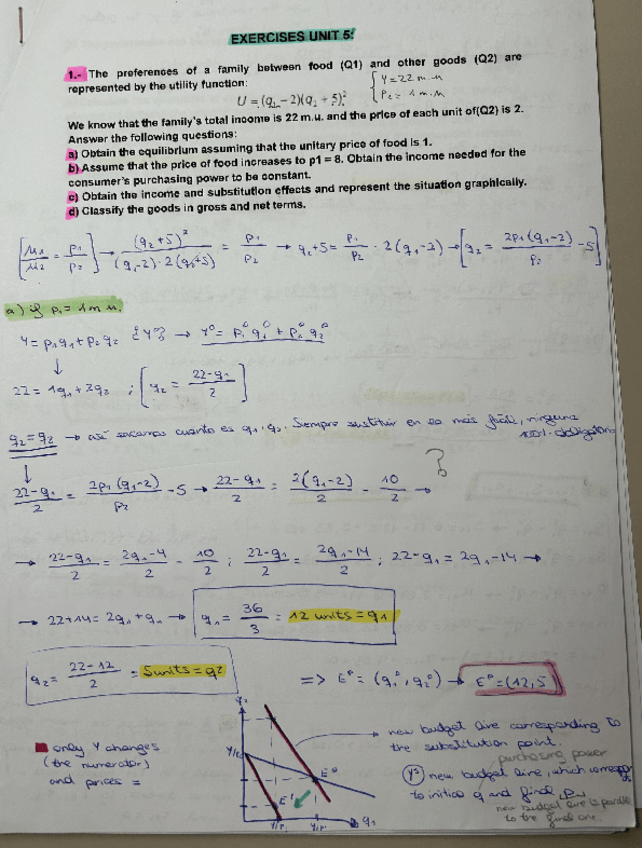 EXERCISES UNIT 5:
1.- The preferences of a family between food (Q1) and other goods (Q2) are
represented by the utility function:
{ Y = 22 m.u
U = (q₁ - 2)(q₂ + 5)²
We know that the family's total income is 22 m.u. and the price of each unit of(Q2) is 2.
Answer the following questions:
a) Obtain the equilibrium assuming that the unitary price of food is 1.
b) Assume that the price of food increases to p1 = 8. Obtain the income needed for the
consumer's purchasing power to be constant.
c) Obtain the income and substitution effects and represent the situation graphically.
d) Classify the goods in gross and net terms.
[μ₁/μ₂ = p₁/p₂] → (q₂+5)²/(q₁-2)·2(q₂+5) = p₁/p₂ → q₂+5 = p₁/p₂ · 2(q₁-2) → [q₂ = 2p₁(q₁-2)/p₂ - 5]
a) if p₁ = 1 m.u.
Y = p₁q₁ + p₂q₂ {Y⁰} → Y⁰ = p₁⁰q₁⁰ + p₂⁰q₂⁰
↓
22 = 1q₁ + 2q₂ ; [q₂ = 22-q₁/2]
q₂ = q₂ → así sacamos cuanto es q₁, q₂. Siempre sustituir en la más fácil, ninguna
obligatoria
↓
?
22-q₁/2 = 2p₁(q₁-2)/p₂ - 5 → 22-q₁/2 = 2(q₁-2)/2 - 10/2 →
→ 22-q₁/2 = 2q₁-4/2 - 10/2 ; 22-q₁/2 = 2q₁-14/2 ; 22-q₁ = 2q₁-14 →
→ 22+14 = 2q₁+q₁ → q₁ = 36/3 = 12 units = q₁
q₂ = 22-12/2 = 5 units = q₂ => E⁰ = (q₁⁰, q₂⁰) → E⁰ = (12,5)
only Y changes
(the numerator)
and prices =
q₂
E⁰
E'
q₁
new budget line corresponding to
the substitution point.
purchasing power
(Yˢ) new budget line, which
to initial q and final p
new budget line is parallel
to the final one.